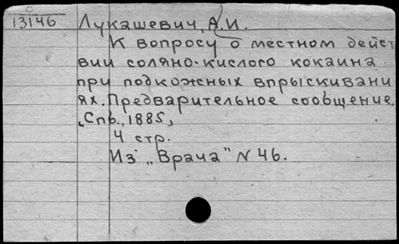 13146 Лукашевич, А.И.
К вопросу о местном дейст
вии соляно-кислого кокаина
при подкожных впрыскивани
ях. Предварительное сообщение.
Спб., 1885,
4 стр.
Из "Врача" N 46.